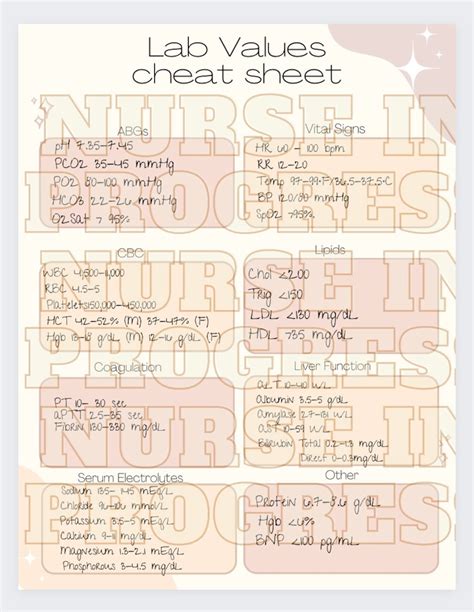 Lab Values
cheat sheet
NURSE IN
PROGRESS
NURSE IN
PROGRESS
NURSE IN
PROGRESS
ABGs
pH 7.35-7.45
PCO2 35-45 mmHg
PO2 80-100 mmHg
HCO3 22-26 mmHg
O2Sat > 95%
Vital Signs
HR 60 - 100 bpm
RR 12-20
Temp 97-99°F/36.5-37.5°C
BP 120/80 mmHg
SpO2 >95%
CBC
WBC 4,500-11,000
RBC 4.5-5
Platelets 150,000-450,000
HCT 42-52% (M) 37-47% (F)
Hgb 13-18 g/dL (M) 12-16 g/dL (F)
Lipids
Chol <200
Trig <150
LDL <130 mg/dL
HDL >35 mg/dL
Coagulation
PT 10- 30 sec
aPTT 25-35 sec
Fibrin 180-330 mg/dL
Liver Function
ALT 10-40 U/L
Albumin 3.5-5 g/dL
Amylase 27-131 U/L
AST 10-59 U/L
Bilirubin Total 0.2-1.3 mg/dL
Direct 0-0.3mg/dL
Serum Electrolytes
Sodium 135- 145 mEq/L
Chloride 96-106 mEq/L
Potassium 3.5-5 mEq/L
Calcium mEq/L
Magnesium 1.3-2.1 mEq/L
Phosphorous 3-4.5 mg/dL
Other
Protein 6.7-8.6 g/dL
Hgb <6%
BNP <100 pg/mL